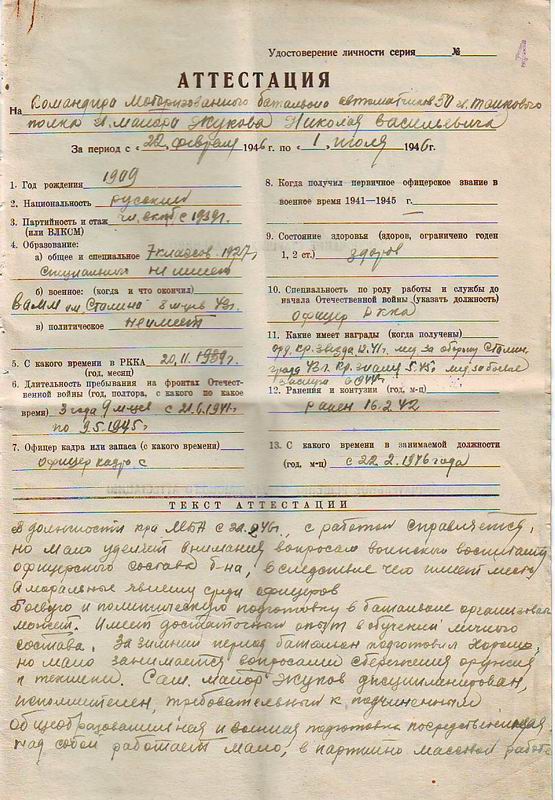 Удостоверение личности серия №
АТТЕСТАЦИЯ
На Командира Моторизованного батальона автоматчиков 50 Танкового
полка майора Жукова Николая Васильевича
За период с «22» февраля 1946 г. по «1» июля 1946 г.
1. Год рождения 1909
2. Национальность русский
3. Партийность и стаж чл. вкпб с 1939г.
(или ВЛКСМ)
4. Образование:
а) общее и специальное 7 классов 1927г
специального не имеет
б) военное: (когда и что окончил)
им. Сталина 8 м-цев 43г.
в) политическое не имеет
5. С какого времени в РККА 20.11.
(год, месяц)
6. Длительность пребывания на фронтах Отечест-
венной войны (год, полтора, с какого по какое
время) 3 года 9 м-цев с 21.6.1941г.
по 9.5.1945г.
7. Офицер кадра или запаса (с какого времени)
офицер кадра с
8. Когда получил первичное офицерское звание в
военное время 1941—1945 г. —
9. Состояние здоровья (здоров, ограничено годен
1, 2 ст.) здоров
10. Специальность по роду работы и службы до
начала Отечественной войны (указать должность)
офицер РККА
11. Какие имеет награды (когда получены)
орд. кр. звезда 12.41г. за оборону Сталин-
града 43г. кр. знамя 5.45г. за боевые
заслуги в 1944г.
12. Ранения и контузии (год, м-ц)
ранен 16.2.42
13. С какого времени в занимаемой должности
(год, м-ц) с 22.2.1946 года
ТЕКСТ АТТЕСТАЦИИ
В должности к-ра МБА с 46г., с работой справляется,
но мало уделяет внимания вопросам воинского воспитания
офицерского состава б-на, вследствие чего имеет место
аморальные явления среди офицеров
Боевую и политическую подготовку в батальоне организовать
может. Имеет достаточный опыт в обучении личного
состава. За зимний период батальон подготовил хорошо,
но мало занимается вопросами сбережения оружия
и техники. Сам майор Жуков дисциплинирован,
исполнителен, требовательный к подчиненным
Общеобразовательная и военная подготовка посредственная
над собой работает мало, в партийно массовой работе